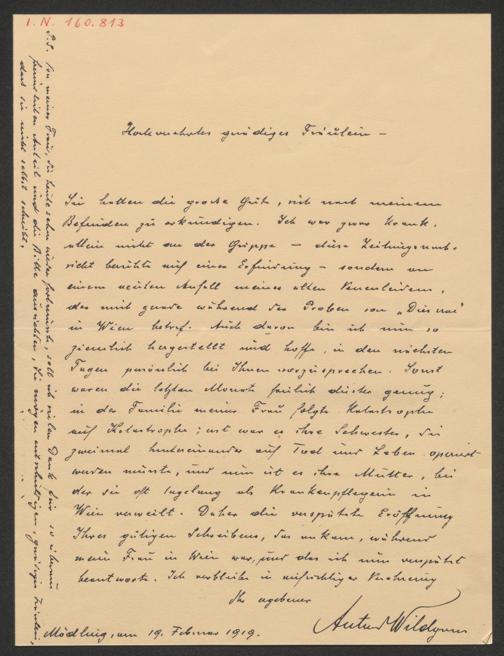 I.N. 160.813
Hochverehrtes gnädiges Fräulein –
Sie hatten die grosse Güte, sich nach meinem
Befinden zu erkundigen. Ich war zwar krank,
allein nicht an der Grippe – diese Zeitungsnach-
richt beruhte auf einer Erfindung – sondern an
einem neuen Anfall meines alten Venenleidens,
der mich gerade während der Proben von „Dies irae"
in Wien betraf. Auch davon bin ich nun so
ziemlich hergestellt und hoffe, in den nächsten
Tagen persönlich bei Ihnen vorzusprechen. Sonst
waren die letzten Monate freilich düster genug;
in der Familie meiner Frau folgte Katastrophe
auf Katastrophe; erst war es ihre Schwester, die
zweimal hintereinander auf Tod und Leben operiert
werden musste, und nun ist es ihre Mutter, bei
der sie oft tagelang als Krankenpflegerin in
Wien verweilt. Daher die verspätete Eröffnung
Ihres gütigen Schreibens, das ankam, während
meine Frau in Wien war, und das ich nun verspätet
beantworte. Ich verbleibe in aufrichtiger Verehrung
Ihr ergebener
Anton Wildgans
Mödling, am 19. Februar 1919.
P.S. Von meiner Frau, die heute schon wieder fort musste, soll ich vielen Dank für so überaus
freundlichen Anteil und die Bitte ausrichten, Sie mögen entschuldigen, gnädiges Fräulein,
dass sie nicht selbst schreibt.